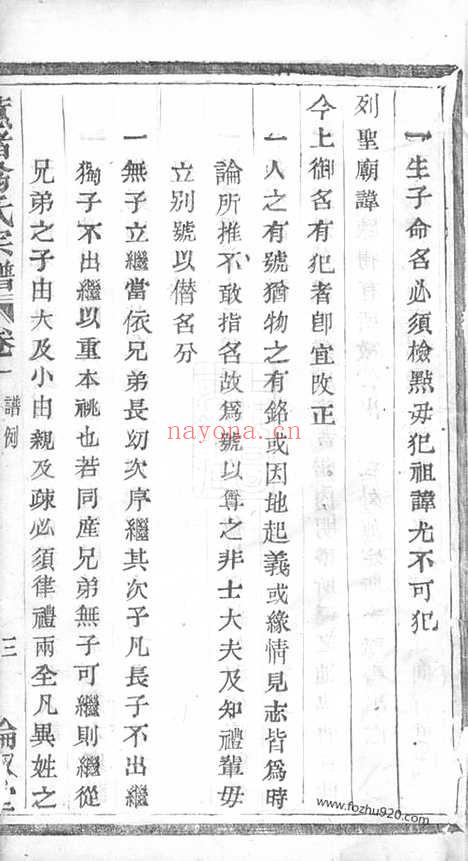 一生子命名必須檢點毋犯祖諱尤不可犯
列聖廟諱
今上御名有犯者卽宜改正
一人之有號猶物之有銘或因地起義或緣情見志皆爲時
論所推不敢指名故爲號以尊之非士大夫及知禮輩毋
立別號以僭名分
一無子立繼當依兄弟長幼次序繼其次子凡長子不出繼
一獨子不出繼以重本祧也若同產兄弟無子可繼則繼從
兄弟之子由大及小由親及疎必須律禮兩全凡異姓之
氏宗譜
卷一
譜例
三
nayona.cn
www.fozhu920.com